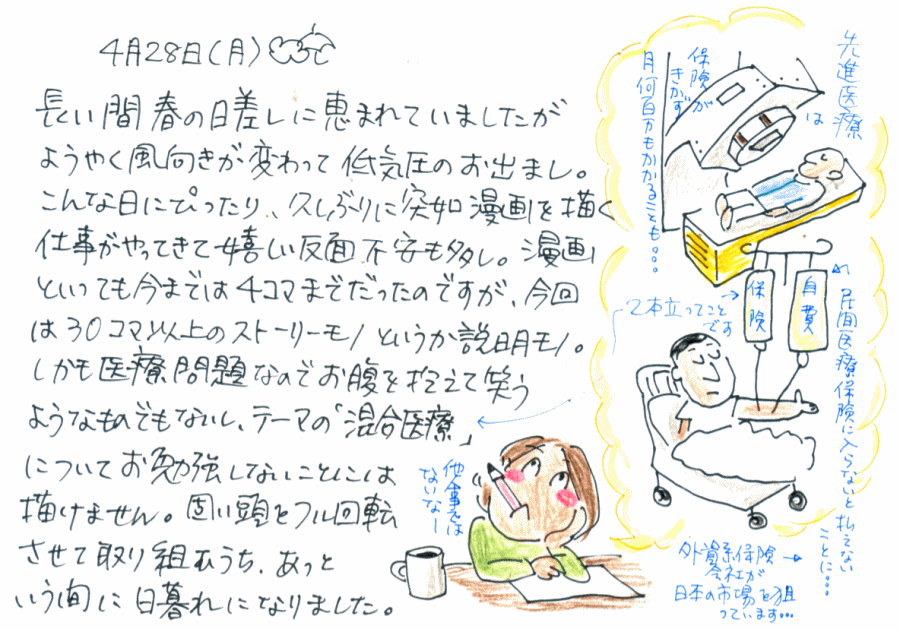 4月28日(月)
長い間春の日差しに恵まれていましたが
ようやく風向きが変わって低気圧のお出まし。
こんな日にぴったり、久しぶりに突如漫画を描く
仕事がやってきて嬉しい反面不安も多し。漫画
といっても今までは4コマまでだったのですが、今回
は30コマ以上のストーリーモノというか説明モノ。
しかも医療問題なのでお腹を抱えて笑う
ようなものでもないし、テーマの「混合医療」
についてお勉強しないことには
描けません。固い頭をフル回転
させて取り組むうち、あっと
いう間に日暮れになりました。
先進医療
は
保険が
きかず
月何百万もかかることも。。。
2本立ってこと
です
保険
自費
民間医療保険に入らないと払えない
ことに。。。
他人事では
ないなー
外資系保険
会社が
日本の市場を狙
っています…